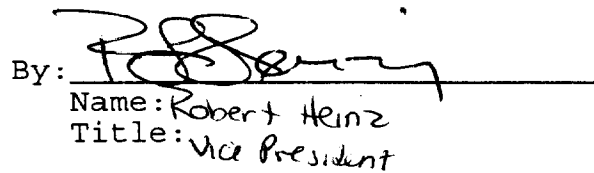 By:
Name: Robert Heinz
Title: Vice President